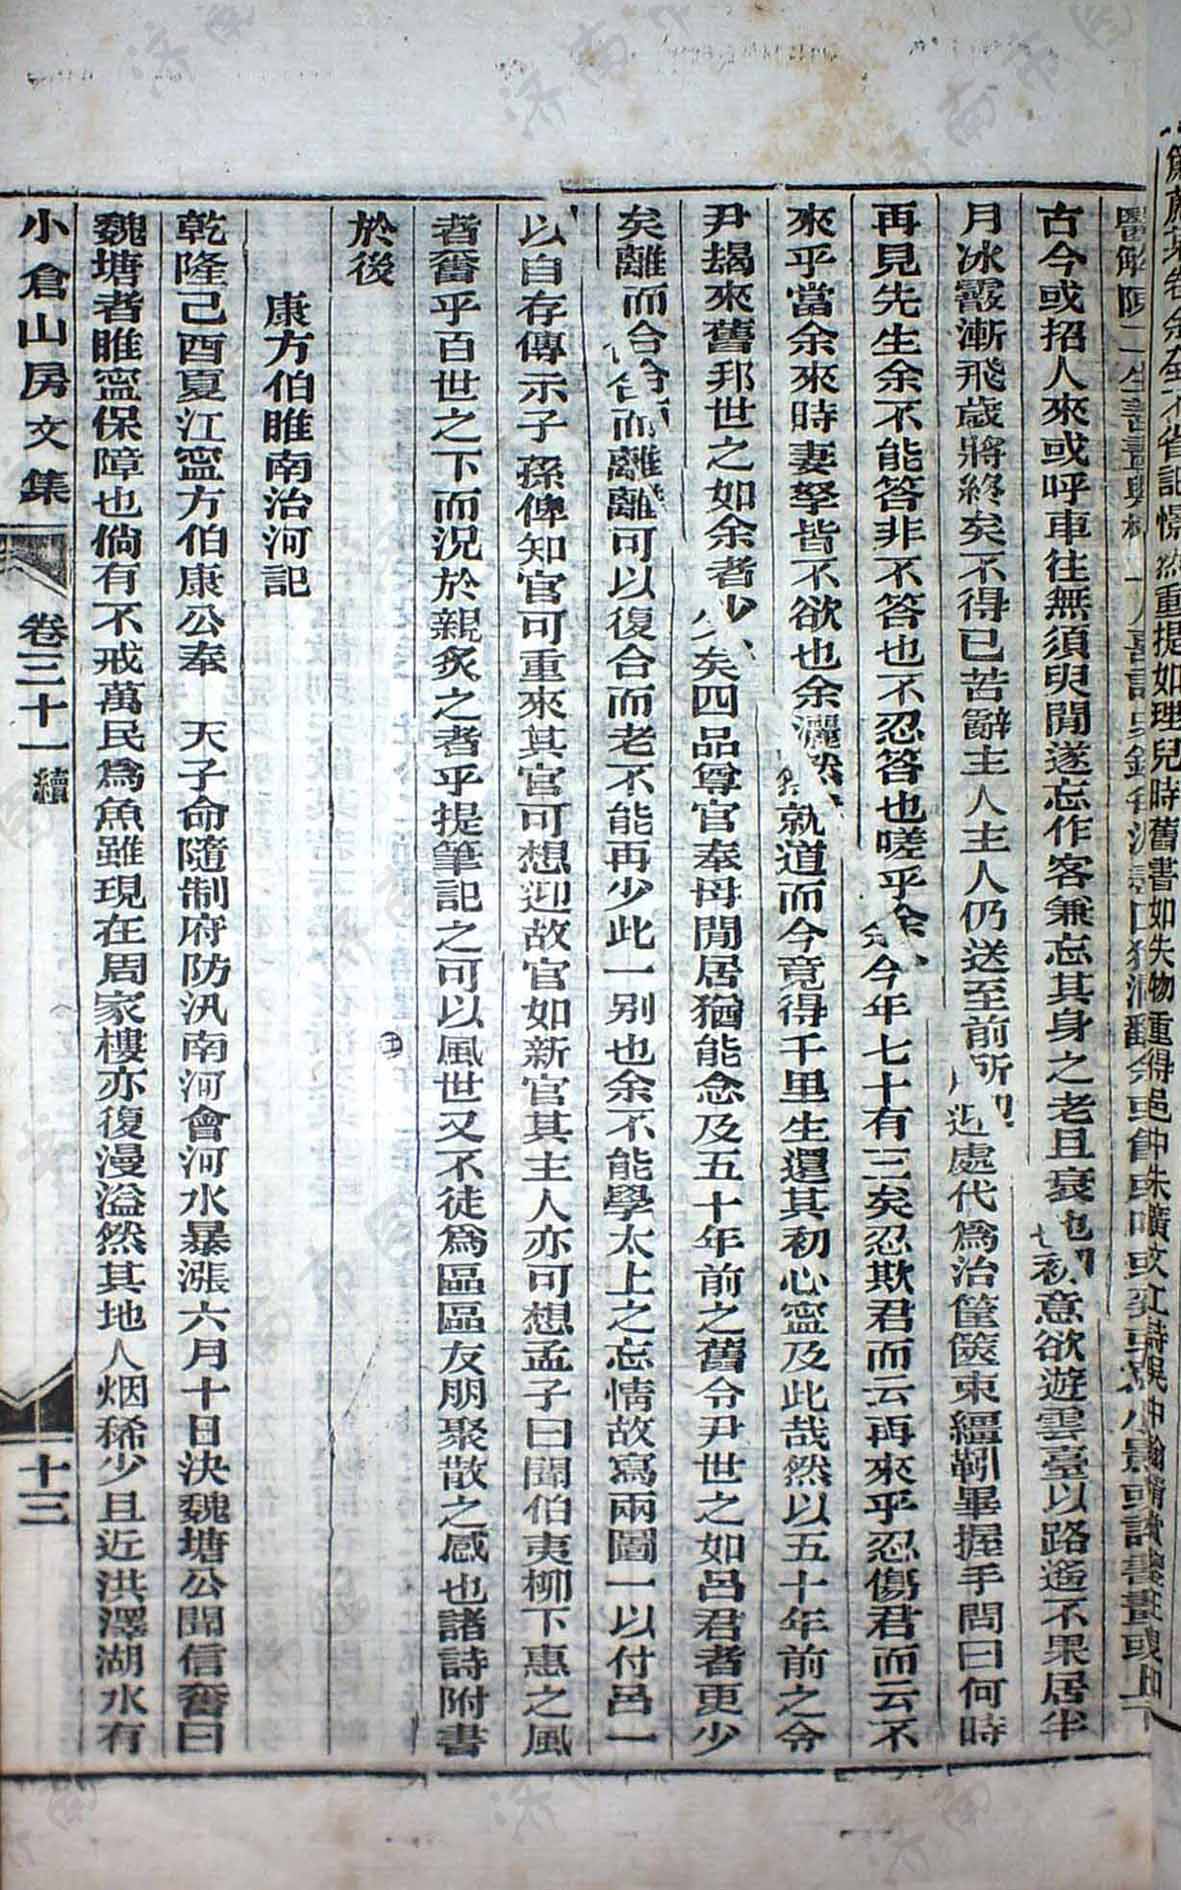 古今或招人來或呼車往無須臾閒遂忘作客兼忘其身之老且衰也初意欲遊雲臺以路遙不果居半
月冰霰漸飛歲將終矣不得已苦辭主人主人仍送至前所迎處代爲治筐篋束韁靷畢握手問曰何時
再見先生余不能答非不答也不忍答也嗟乎余今年七十有三矣忍欺君而云再來乎忍傷君而云不
來乎當余來時妻孥皆不欲也余灑然就道而今竟得千里生還其初心寧及此哉然以五十年前之令
尹朅來舊邦世之如余者少矣四品尊官奉母閒居猶能念及五十年前之舊令尹世之如呂君者更少
矣離而合合而離離可以復合而老不能再少此一別也余不能學太上之忘情故寫兩圖一以付呂一
以自存傳示子孫俾知官可重來其官可想迎故官如新官其主人亦可想孟子曰聞伯夷柳下惠之風
者奮乎百世之下而況於親炙之者乎提筆記之可以風世又不徒爲區區友朋聚散之感也諸詩附書
於後
康方伯睢南治河記
乾隆己酉夏江寧方伯康公奉　天子命隨制府防汛南河會河水暴漲六月十日決魏塘公聞信奮曰
魏塘者睢寧保障也倘有不戒萬民爲魚雖現在周家樓亦復漫溢然其地人烟稀少且近洪澤湖水有
小倉山房文集 卷三十一續 十三